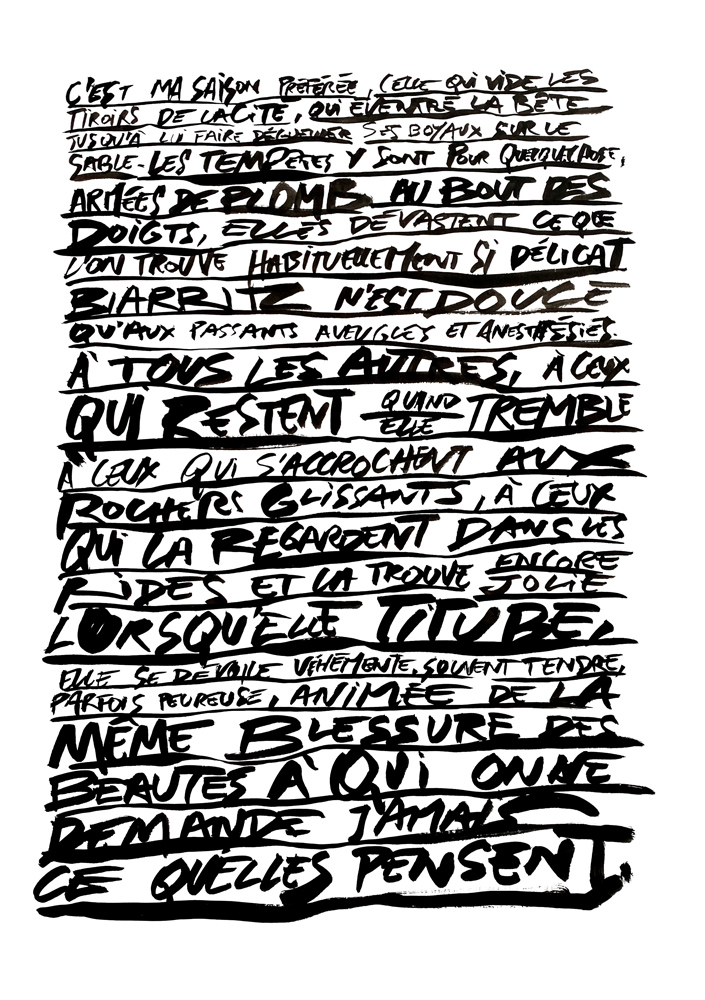 C'EST MA SAISON PRÉFÉRÉE, CELLE QUI VIDE LES
TIROIRS DE LA CITÉ, QUI ÉVENTRE LA BÊTE
JUSQU'À LUI FAIRE DÉGUEULER SES BOYAUX SUR LE
SABLE. LES TEMPÊTES Y SONT POUR QUELQUE CHOSE,
ARMÉES DE PLOMB AU BOUT DES
DOIGTS, ELLES DÉVASTENT CE QUE
L'ON TROUVE HABITUELLEMENT SI DÉLICAT
BIARRITZ N'EST DOUCE
QU'AUX PASSANTS AVEUGLES ET ANESTHÉSIÉS.
À TOUS LES AUTRES, À CEUX
QUI RESTENT QUAND ELLE TREMBLE
À CEUX QUI S'ACCROCHENT AUX
ROCHERS GLISSANTS, À CEUX
QUI LA REGARDENT DANS LES
RIDES ET LA TROUVE ENCORE JOLIE
LORSQU'ELLE TITUBE,
ELLE SE DÉVOILE VÉHÉMENTE, SOUVENT TENDRE,
PARFOIS PEUREUSE, ANIMÉE DE LA
MÊME BLESSURE DES
BEAUTÉS À QUI ON NE
DEMANDE JAMAIS
CE QU'ELLES PENSENT.